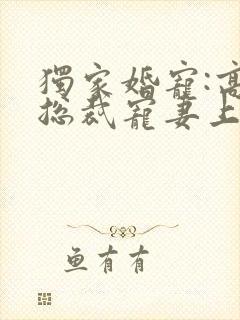 獨家婚寵:高
總裁寵妻上
鱼有有